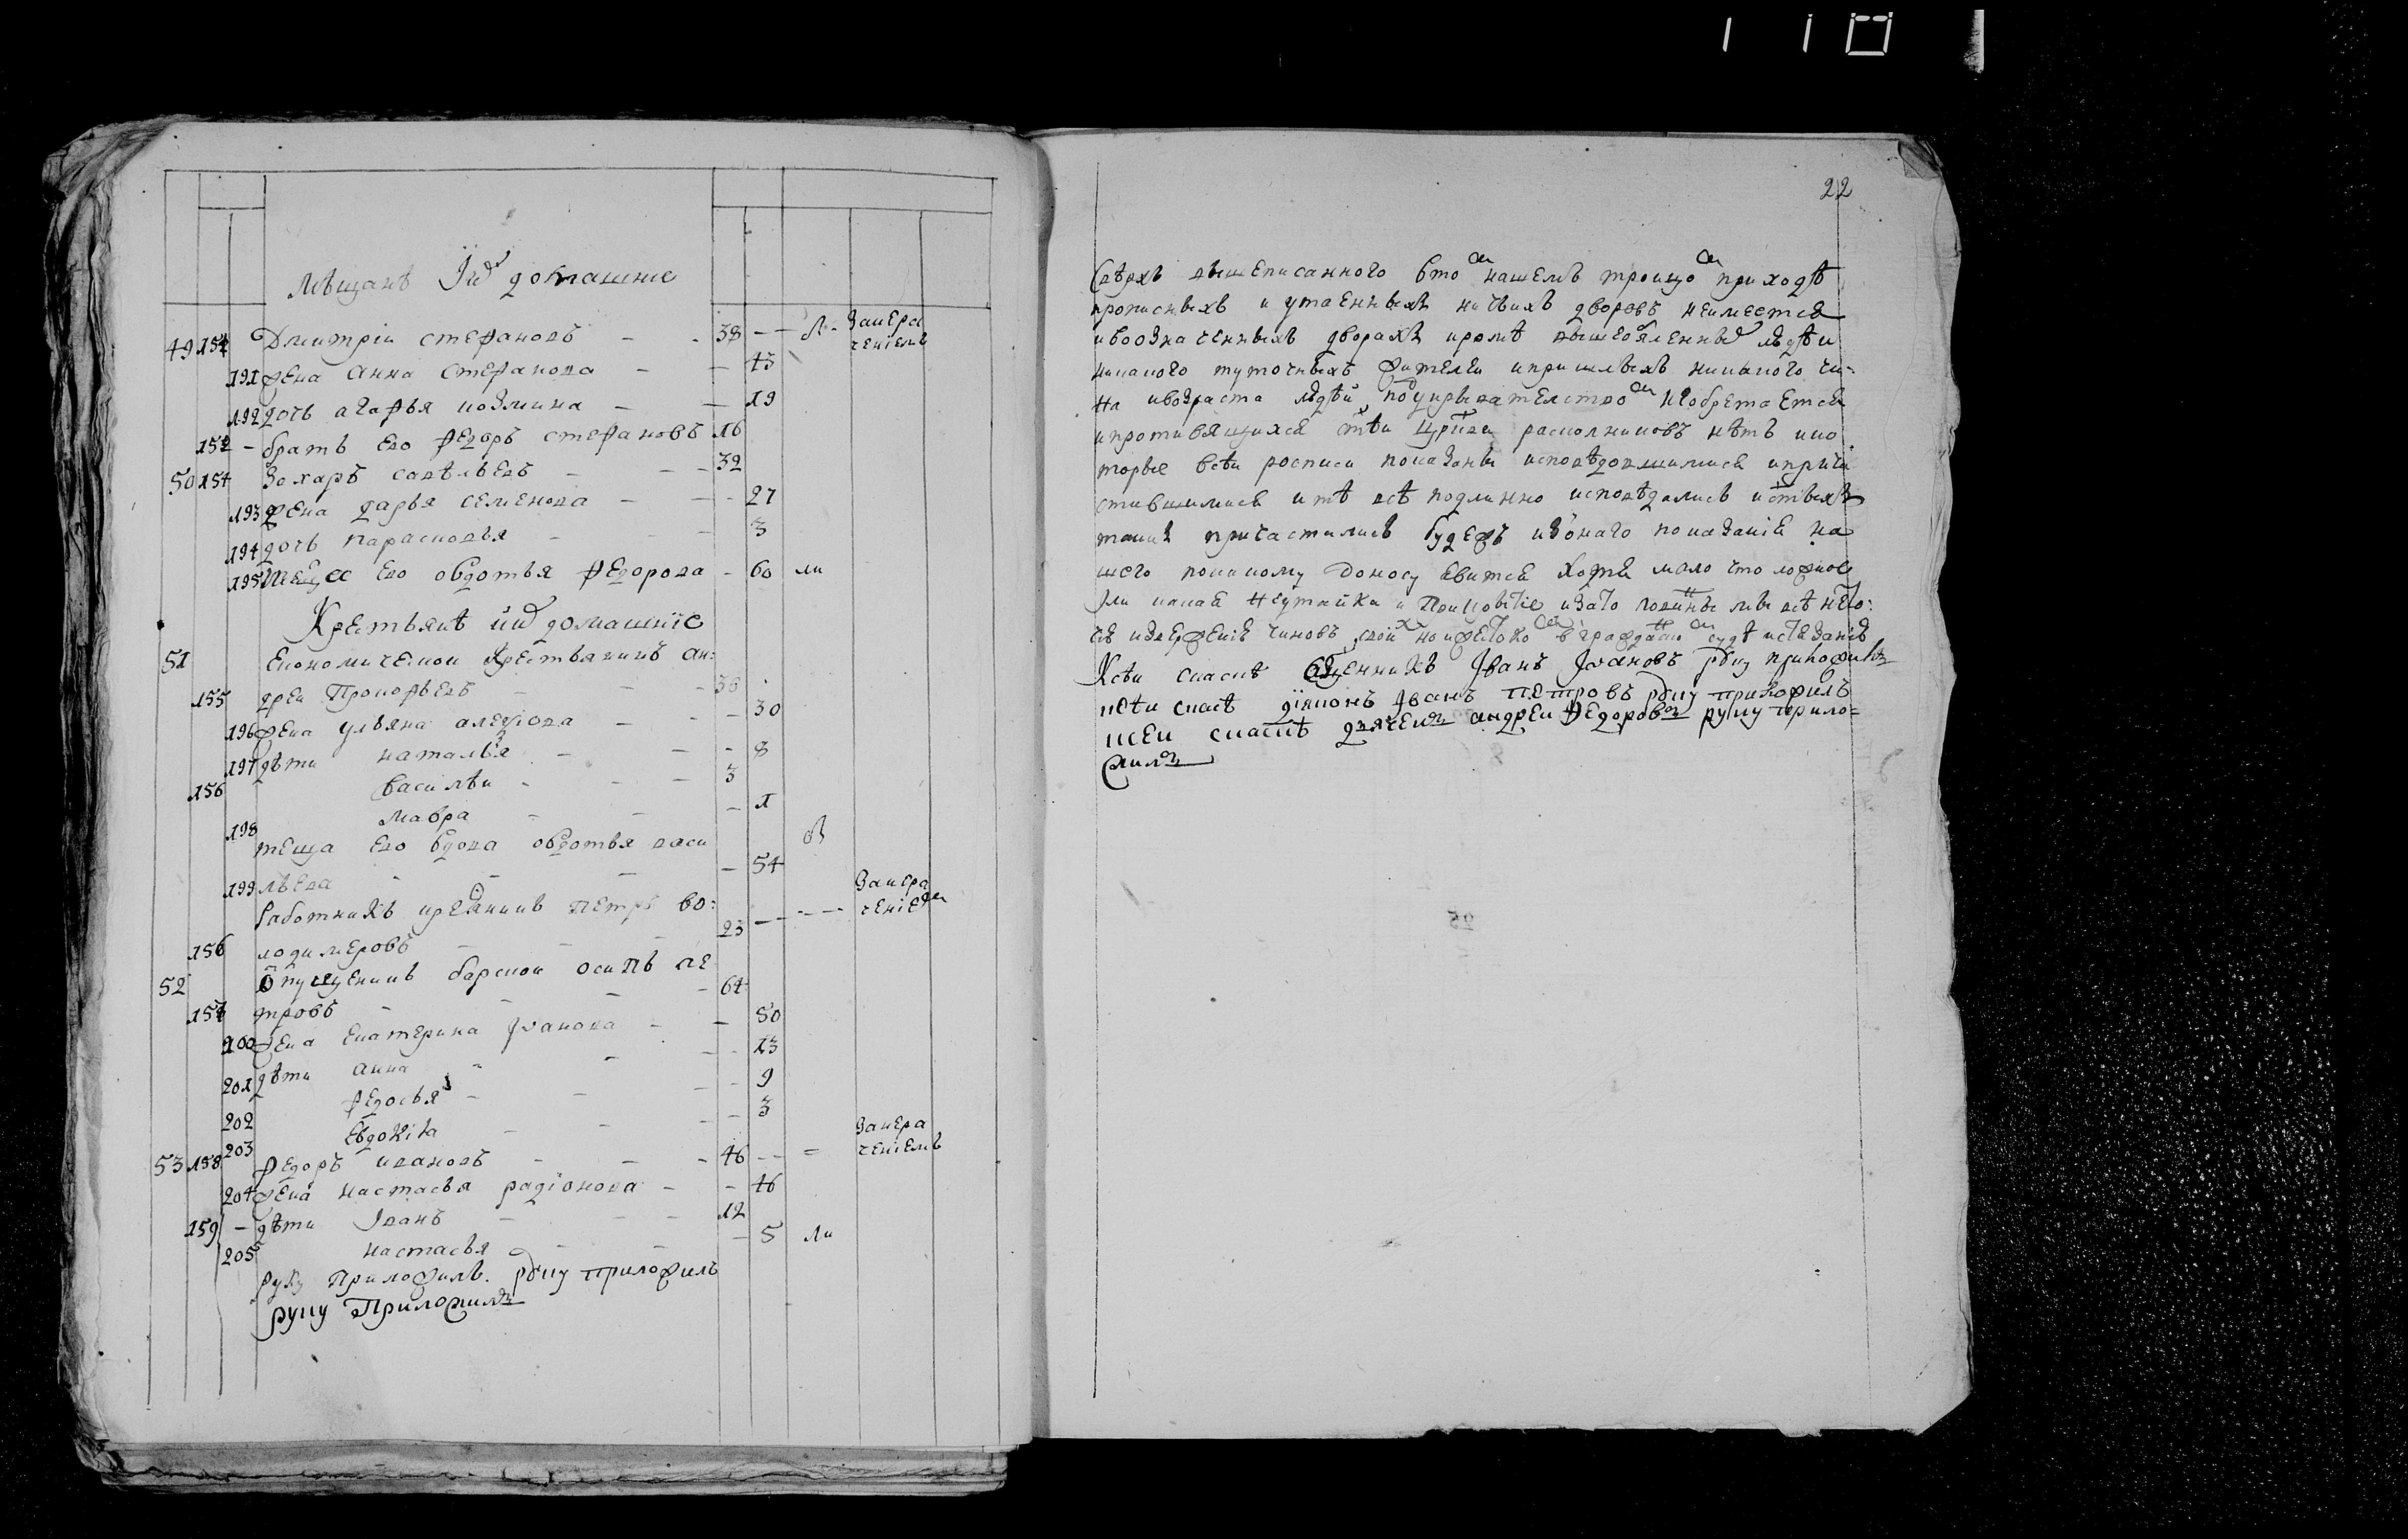 110
Мѣщанѣ и ихъ домашніе
49 151 Дмитрiи стефановъ - - 38 - - Л - Занера
ченiемъ
191 жена анна стефанова - - 43
192 дочь агафья козмина - - 19
152 - братъ ево федоръ стефановъ 16
50 154 Захаръ савѣльевъ - - - 32
193 жена дарья семенова - - - 27
194 дочь парасковья - - - 3
195 теща ево овдотья федорова - 60 ли
Крестьянѣ и ихъ домашнiе
51 Економическои крестьянинъ ан:
155 дреи Прокофьевъ - - - 38
196 жена ульяна алексѣева - - - 30
197 дѣти наталья - - - 8
156 василѣи - - - 3
198 мавра - - - 1
теща ево вдова овдотья васи
199 льева - - - 54
Занера
Работникъ крестьянинъ Петръ во:
ченiемъ
156 лодимеровъ - - - 23 - - - -
52 Отпущеникъ барскои осипъ пе
157 тровъ - - - 64
200 жена Екатерина Iванова - - 50
201 дѣти анна - - - - 13
202 федосья - - - - 9
203 Евдокiя - - - - 3
Занера
53 158 федоръ ивановъ - - - 46 - - = ченiемъ
204 жена настасья радiонова - - 46
159 - дѣти Iванъ - - - 12
205 настасья - - - 5 ли
руку Приложилъ. руку приложилъ
руку Приложилъ
22
Сверхъ вышеписанного в томъ нашемъ троицкомъ приходѣ
прописныхъ и утаенныхъ ничьихъ дворовъ неимеется
и возначенныхъ дворахъ кромѣ вышеобявленныхъ людѣи
никакого туточныхъ жителеи и пришлыхъ никакого чи-
на и возраста людѣй подукрывателствомъ необретаетея
и противящихся стѣи церкви расколниковъ нѣтъ а ко
торые всѣи росписи показаны исповѣдовшимися и прича
стившимися и тѣ всѣ подлинно исповѣдались и стыхъ
таинъ причастились будежъ изонаго показанiя на
шего покакому доносу явится хотя мало что ложное
Или какая неутайка и Прикрытiе и зато повинны мы всѣ нето:
чiя извержениѣ чиновъ своихъ но и жестокомъ в гражданскомъ судѣ истязанiѣ
К сеи сказкѣ священникъ Iванъ Iвановъ руку приложилъ
к сеи сказкѣ дiяконъ Iванъ петровъ руку приложилъ
к сеи сказкѣ дьячекъ андреи Федоровъ руку прило=
жилъ